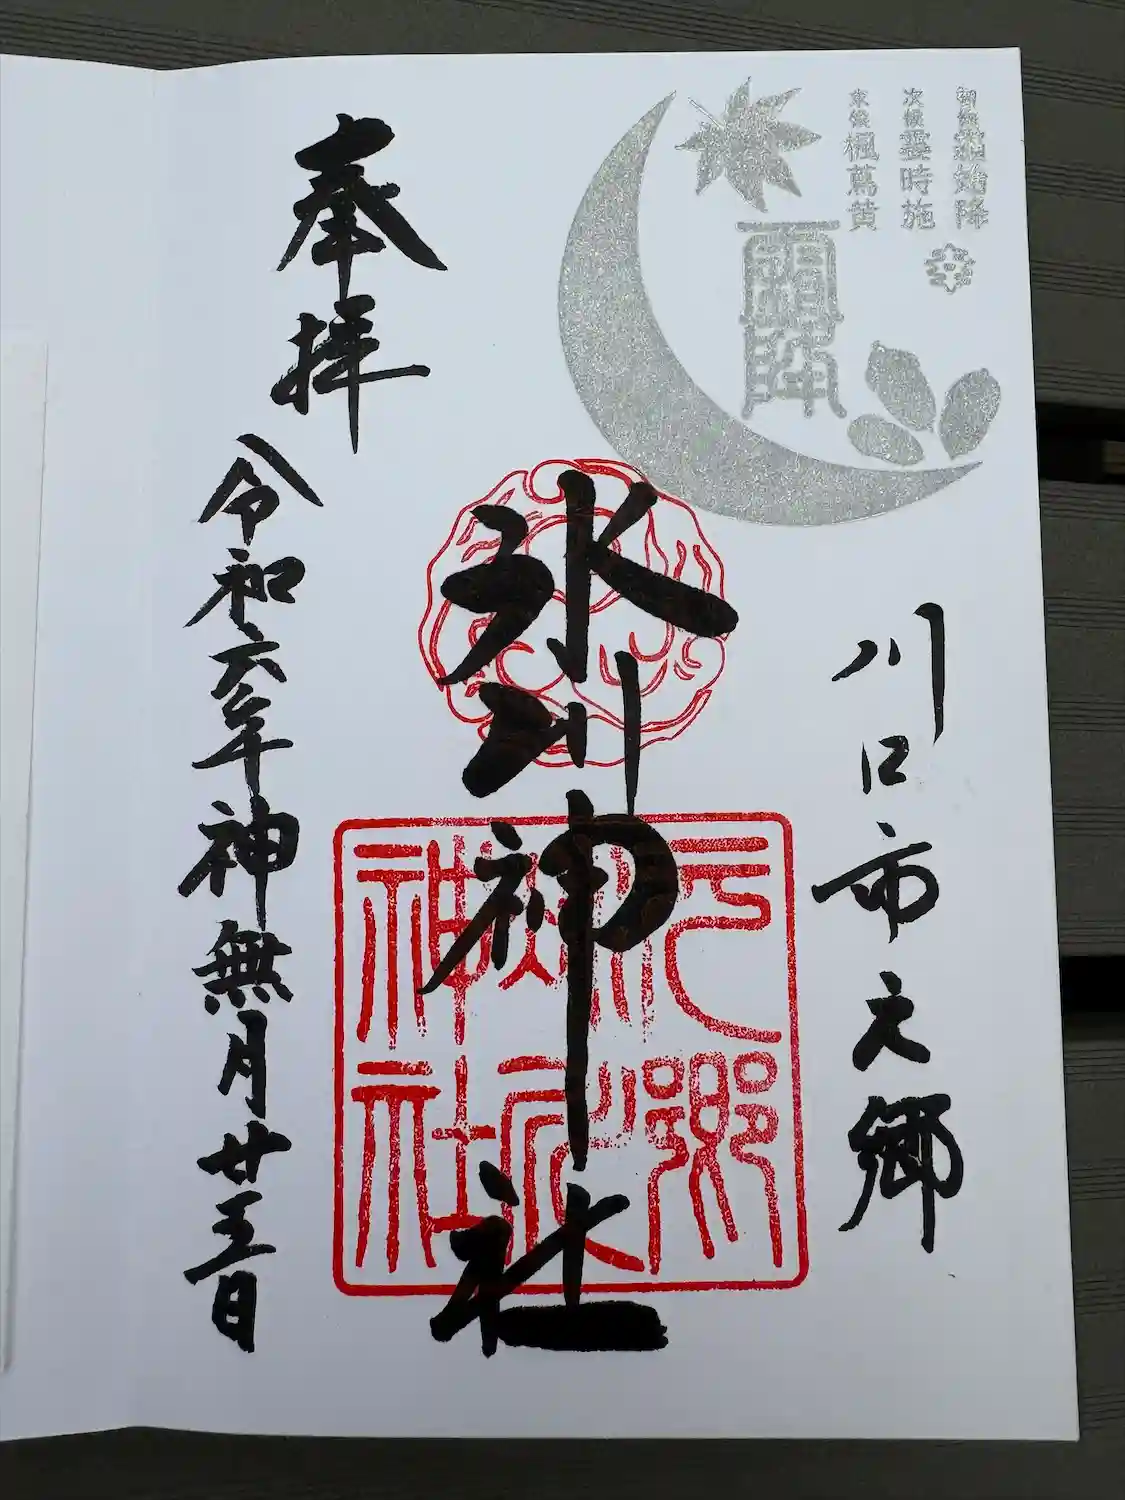 初候霜始降
次候霎時施
末候楓蔦黄
霜降
川口市元郷
氷川神社
元郷
氷川
神社
奉拝
令和六年神無月廿五日